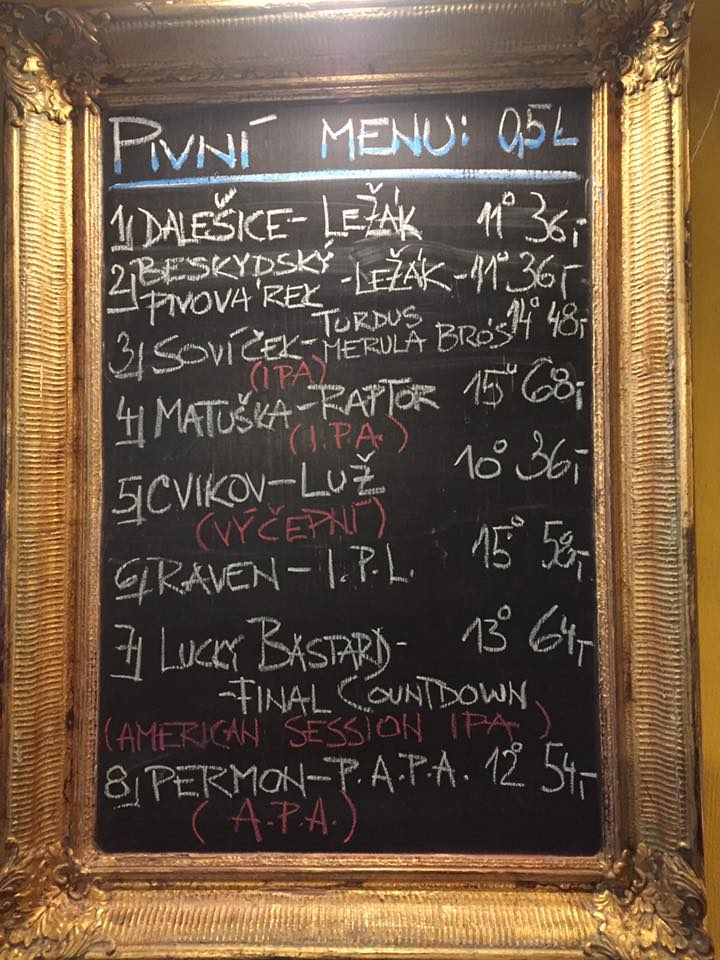 PIVNÍ MENU: 0,5L
1) DALEŠICE - LEŽÁK 11° 36,-
2) BESKYDSKÝ PIVOVÁREK - LEŽÁK - 11° 36,-
3) SOVÍČEK - TURDUS MERULA BROS 14° 48,-
(IPA)
4) MATUŠKA - RAPTOR 15° 68,-
(I.P.A.)
5) CVIKOV - LUŽ 10° 36,-
(VÝČEPNÍ)
6) RAVEN - I.P.L. 15° 58,-
7) LUCKY BASTARD - 13° 64,-
- FINAL COUNTDOWN
(AMERICAN SESSION IPA)
8) PERMON - P.A.P.A. 12° 54,-
(A.P.A.)